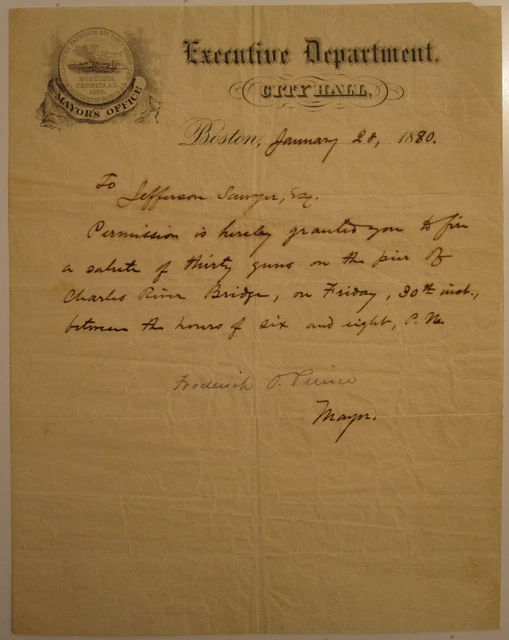 BOSTONIA
CONDITA AD.
1630.
MAYOR'S OFFICE
Executive Department.
CITY HALL,
Boston, January 28, 1880.
To
Jefferson Sawyer, Esq.
Permission is hereby granted you to fire
a salute of thirty guns on the pier of
Charles River Bridge, on Friday, 30th inst.,
between the hours of six and eight, P. M.
Frederick O. Prince
Mayor.